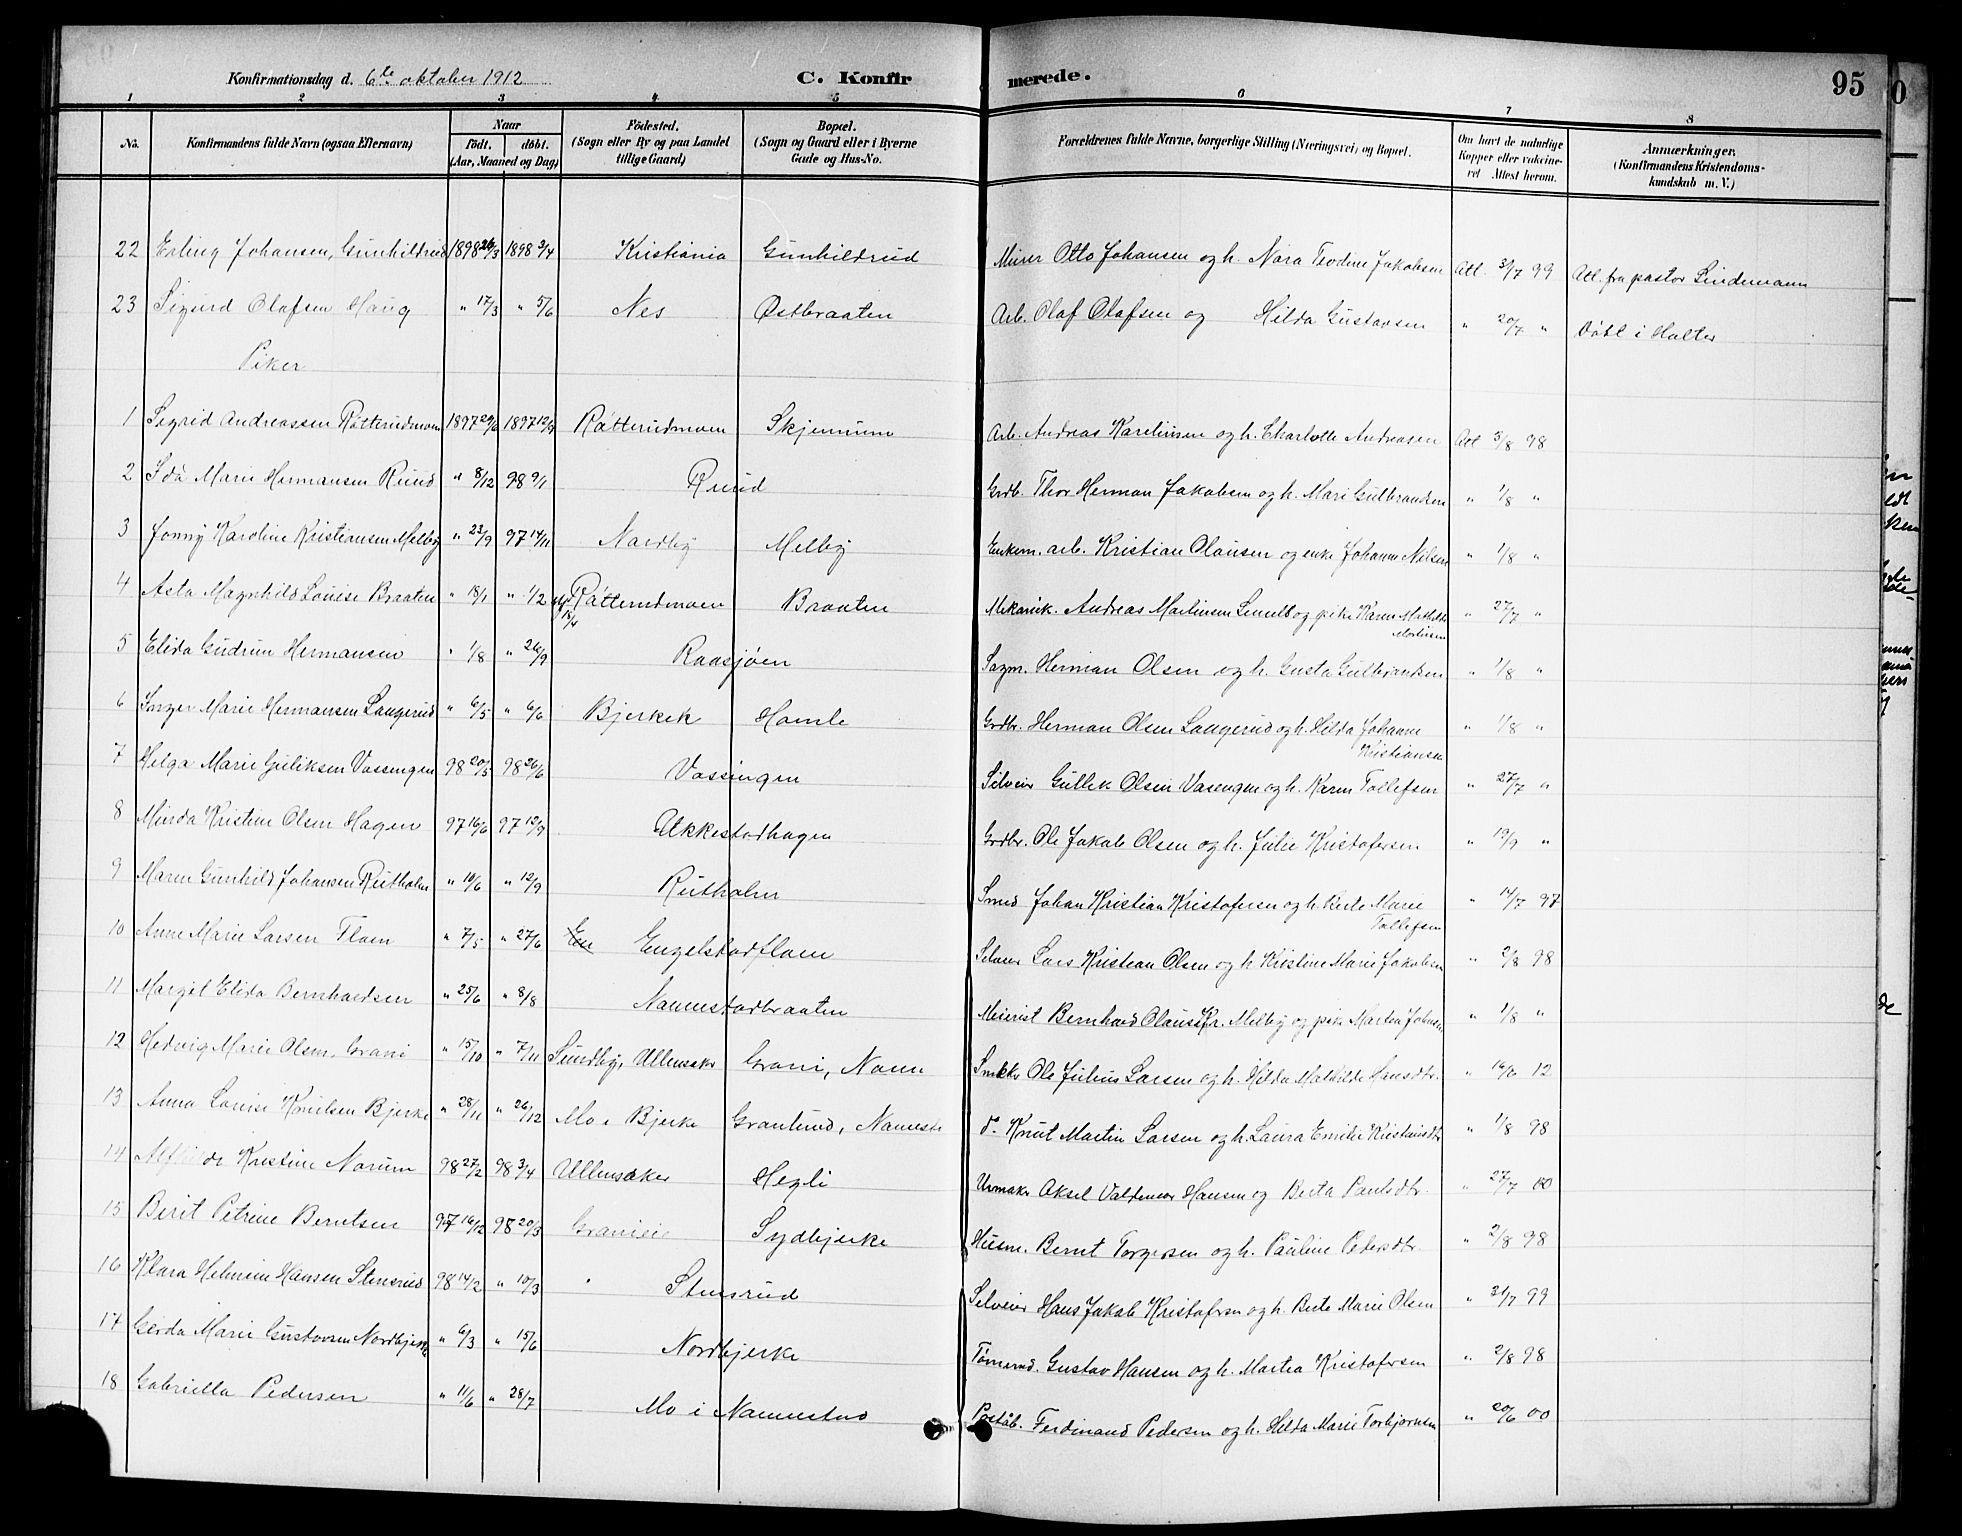 Konfirmationsdag d. 6te oktober 1912 C. Konfirmerede. 95
1 2 3 4 5 6 7 8
No. Konfirmandens fulde Navn (ogsaa Efternavn) Naar født. døbt. (Aar, Maaned og Dag) Fødested. (Sogn eller By og paa Landet tillige Gaard) Bopæl. (Sogn og Gaard eller i Byerne Gade og Hus-No. Forældrenes fulde Navne, borgerlige Stilling (Næringsvei) og Bopæl. Om havt de naturlige Kopper eller vaccineret Attest herom. Anmærkninger. (Konfirmandens Kristendomskundskab m. V.)
22 Erling Johansen, Gunhildrud 1898 26/3 1898 3/4 Kristiania Gunhildrud Murer Otto Johansen og h. Nora Teodine Jakobsen Att. 3/7 99 Att. fra pastor Lindemann
23 Sigurd Olafsen Haug " 17/3 " 5/6 Nes Østbraaten Arb. Olaf Olafsen og Hilda Gustavsen " 20/7 " Døbt i Holter
Piker
1 Sigrid Andreassen Råtterudmoen 1897 1897 12/9 Råtterudmoen Skjennum Arb. Andreas Karelinsen og h. Charlotte Andreasen Att 5/8 98
2 Ida Marie Hermansen Ruud " 8/12 98 9/1 Ruud Grdb. Thor Herman Jakobsen og h. Mari Gulbrandsen " 1/8 "
3 Jonny Karoline Kristiansen Melby " 23/9 97 14/11 Nordby Melby Enkem. arb. Kristian Olausen og enke Johanne Nilsen " 1/8 "
4 Asta Magnhild Louise Braaten " 18/1 " 1/2 Råtterudmoen Braaten Mekanik. Andreas Martinsen og pike Karen Mathilde Mortinsen " 27/7 "
5 Elida Gudrun Hermansen " 1/8 " 26/9 Raasjøen Sagm. Herman Olsen og h. Gusta Gulbrandsen " 1/8 "
6 Inger Marie Hermansen Laugerud " 6/5 " 6/6 Bjerkek Homle Grdbr. Herman Olsen Laugerud og h. Hilda Johanne Kristiansen " 1/8 "
7 Helga Marie Guliksen Vassengen 98 20/5 98 26/6 Vassingen Selveier Gullik Olsen Vasengen og h. Karen Tollefsen " 27/7 "
8 Minda Kristine Olsen Hagen 97 16/6 97 12/9 Ukkestadhagen Grdbr. Ole Jakob Olsen og h. Julie Kristofersen " 19/9 "
9 Maren Gunhild Johansen Rutholm " 10/6 " 12/9 Rutholm Smed Johan Kristian Kristofersen og h. Berte Marie Tollefsen " 14/7 97
10 Anne Marie Larsen Flom " 7/5 " 27/6 Engelstadflom Selveier Lars Kristian Olsen og h. Kristine Marie Jakobsen " 2/8 98
11 Margit Elida Bernhardsen " 25/6 " 8/8 Nannestadbraaten Meierist Bernhard Olaus Kr. Melby og pike Martea Johnsen " 1/8 "
12 Hedvig Marie Olsen, Grani " 15/10 " 7/11 Sundby, Ullensaker Grani, Nann Snekkr Ole Julius Larsen og h. Hilda Mathilde Hansdtr. " 16/6 12
13 Anna Louise Knutsen Bjerke " 28/11 " 26/12 Mo i Bjerke Granlund, Nanneste d. Knut Martin Larsen og h. Laura Emilie Kristiansdtr " 1/8 98
14 Alfhilde Kristine Norum 98 27/2 98 3/4 Ullensaker Hegli Urmaker Aksel Valdemar Hansen og Berta Paulsdtr. " 27/7 00
15 Berit Petrine Berntsen 97 16/12 98 20/3 Granieie Sydbjerke Husm. Bernt Torgersen og h. Pauline Pedersdtr. " 2/8 98
16 Klara Helmine Hansen Stensrud 98 14/2 " 10/3 Stensrud Selveier Hans Jakob Kristofersen og h. Berte Marie Olsen " 21/7 99
17 Gerda Marie Gustavsen Nordbjerke " 6/3 " 15/6 Nordbjerke Tømmermd. Gustav Hansen og h. Martea Kristofersen " 2/8 98
18 Gabriella Pedersen " 11/6 " 28/7 Mo i Nannestad Poståb. Ferdinand Pedersen og h. Hilda Marie Torbjørnsen " 20/6 00